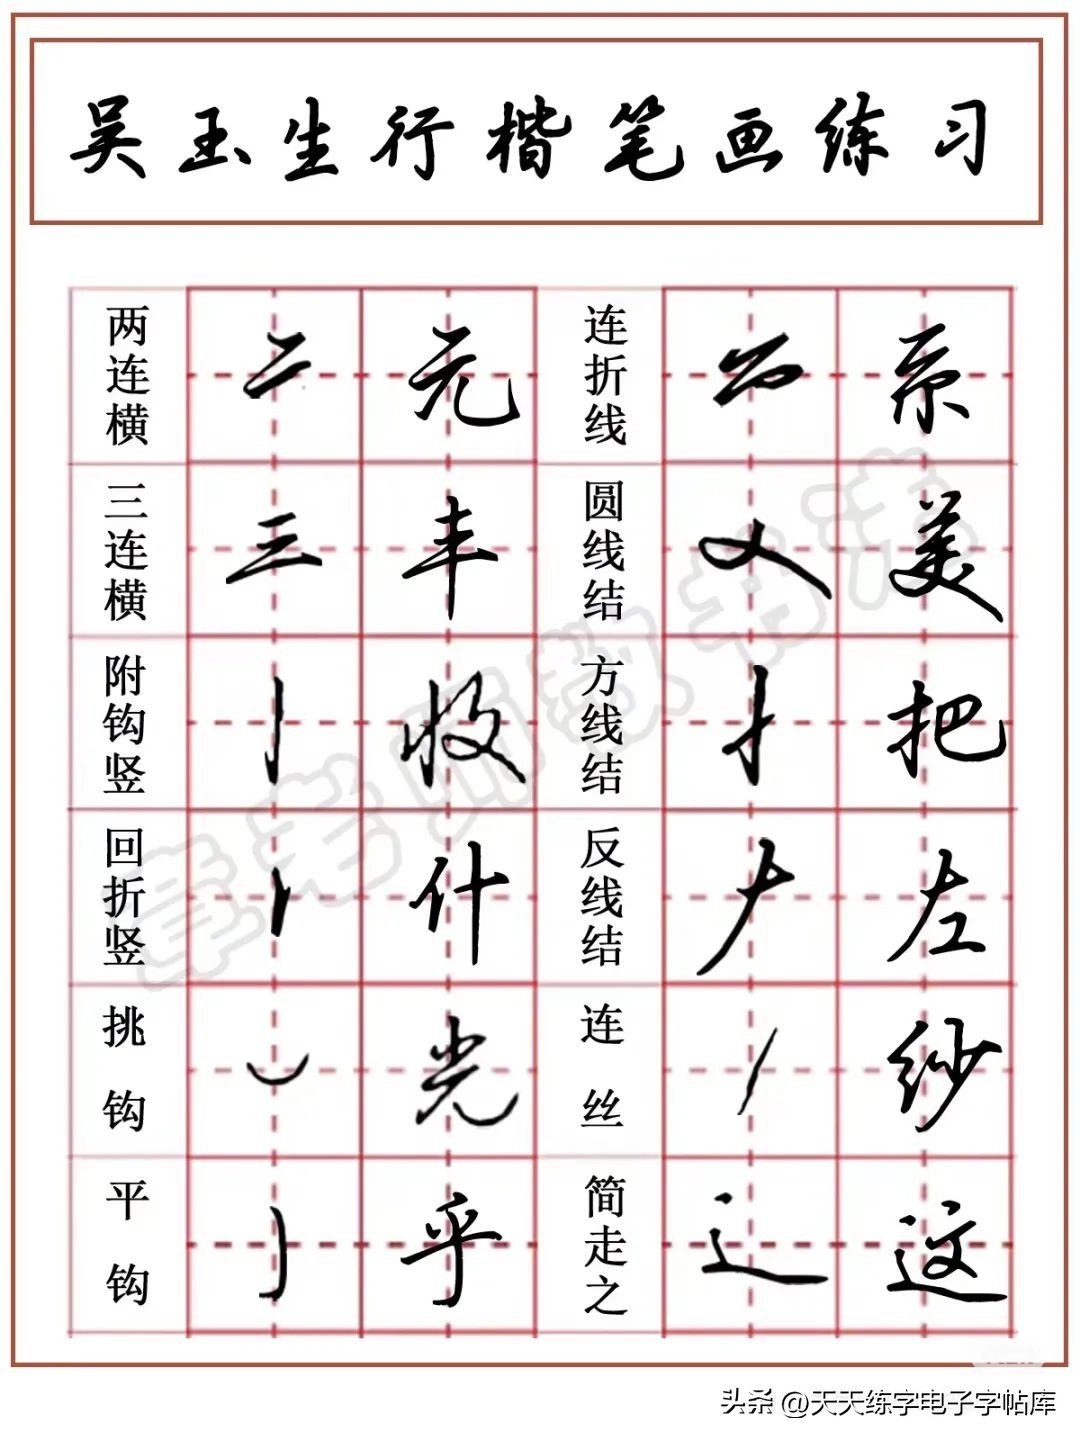 吴玉生行楷笔画练习
两连横 二 元 连折线 系
三连横 三 丰 圆线结 美
附钩竖 收 方线结 把
回折竖 什 反线结 左
挑钩 光 连丝 纱
平钩 乎 简走之 辶 这
章老师教书法
头条 @天天练字电子字帖库